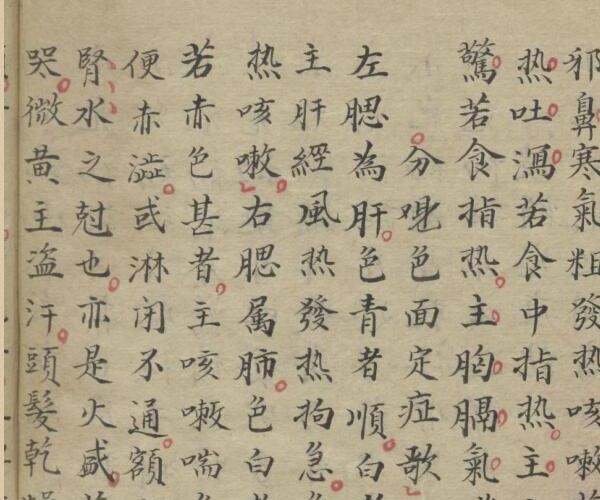 邪鼻寒氣粗發热咳嗽
热吐瀉若食中指热主
驚若食指热主胸膈氣
分覌色面定症歌
左腮為肝色青者順白
主肝經風热發热拘急
热咳嗽右腮属肺色白
若赤色甚者主咳嗽喘
便赤澁或淋闭不通額
腎水之尅也亦是火盛
哭微黄主盗汗頭髮乾